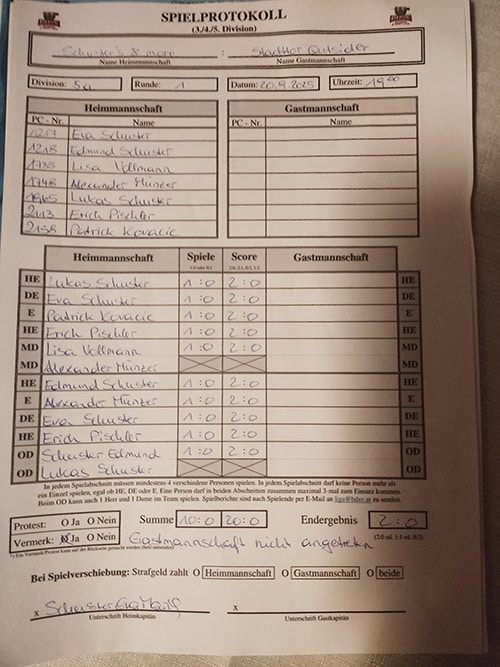 SPIELPROTOKOLL
(3./4./5. Division)
Schuster's & more : Stadttor Outsider
Name Heimmannschaft Name Gastmannschaft
Division: 5a Runde: 1 Datum: 20.9.2025 Uhrzeit: 19 00
Heimmannschaft Gastmannschaft
PC - Nr. Name PC - Nr. Name
1217 Eva Schuster
1218 Edmund Schuster
1735 Lisa Vollmann
1748 Alexander Münzer
1965 Lukas Schuster
2113 Erich Pischler
2158 Patrick Kovacic
Heimmannschaft Spiele Score Gastmannschaft
1:0 oder 0:1 2:0, 2:1, 0:2, 1:2
HE Lukas Schuster 1:0 2:0 HE
DE Eva Schuster 1:0 2:0 DE
E Patrick Kovacic 1:0 2:0 E
HE Erich Pischler 1:0 2:0 HE
MD Lisa Vollmann 1:0 2:0 MD
MD Alexander Münzer MD
HE Edmund Schuster 1:0 2:0 HE
E Alexander Münzer 1:0 2:0 E
DE Eva Schuster 1:0 2:0 DE
HE Erich Pischler 1:0 2:0 HE
OD Schuster Edmund 1:0 2:0 OD
OD Lukas Schuster OD
In jedem Spielabschnitt müssen mindestens 4 verschiedene Personen spielen. In jedem Spielabschnitt darf keine Person mehr als
ein Einzel spielen, egal ob HE, DE oder E. Eine Person darf in beiden Abschnitten zusammen maximal 3-mal zum Einsatz kommen.
Beim OD kann auch 1 Herr und 1 Dame im Team spielen. Spielberichte sind nach Spielende per E-Mail an liga@bdsv.at zu senden.
Protest: O Ja O Nein Summe 10:0 20:0 Endergebnis 2:0
Vermerk: O Ja O Nein Gastmannschaft nicht angetreten (2:0 od. 1:1 od. 0:2)
*) Ein Vermerk/Protest kann auf der Rückseite gemacht werden
Bei Spielverschiebung: Strafgeld zahlt O Heimmannschaft O Gastmannschaft O beide
x Schuster Eva x
Unterschrift Heimkapitän Unterschrift Gastkapitän